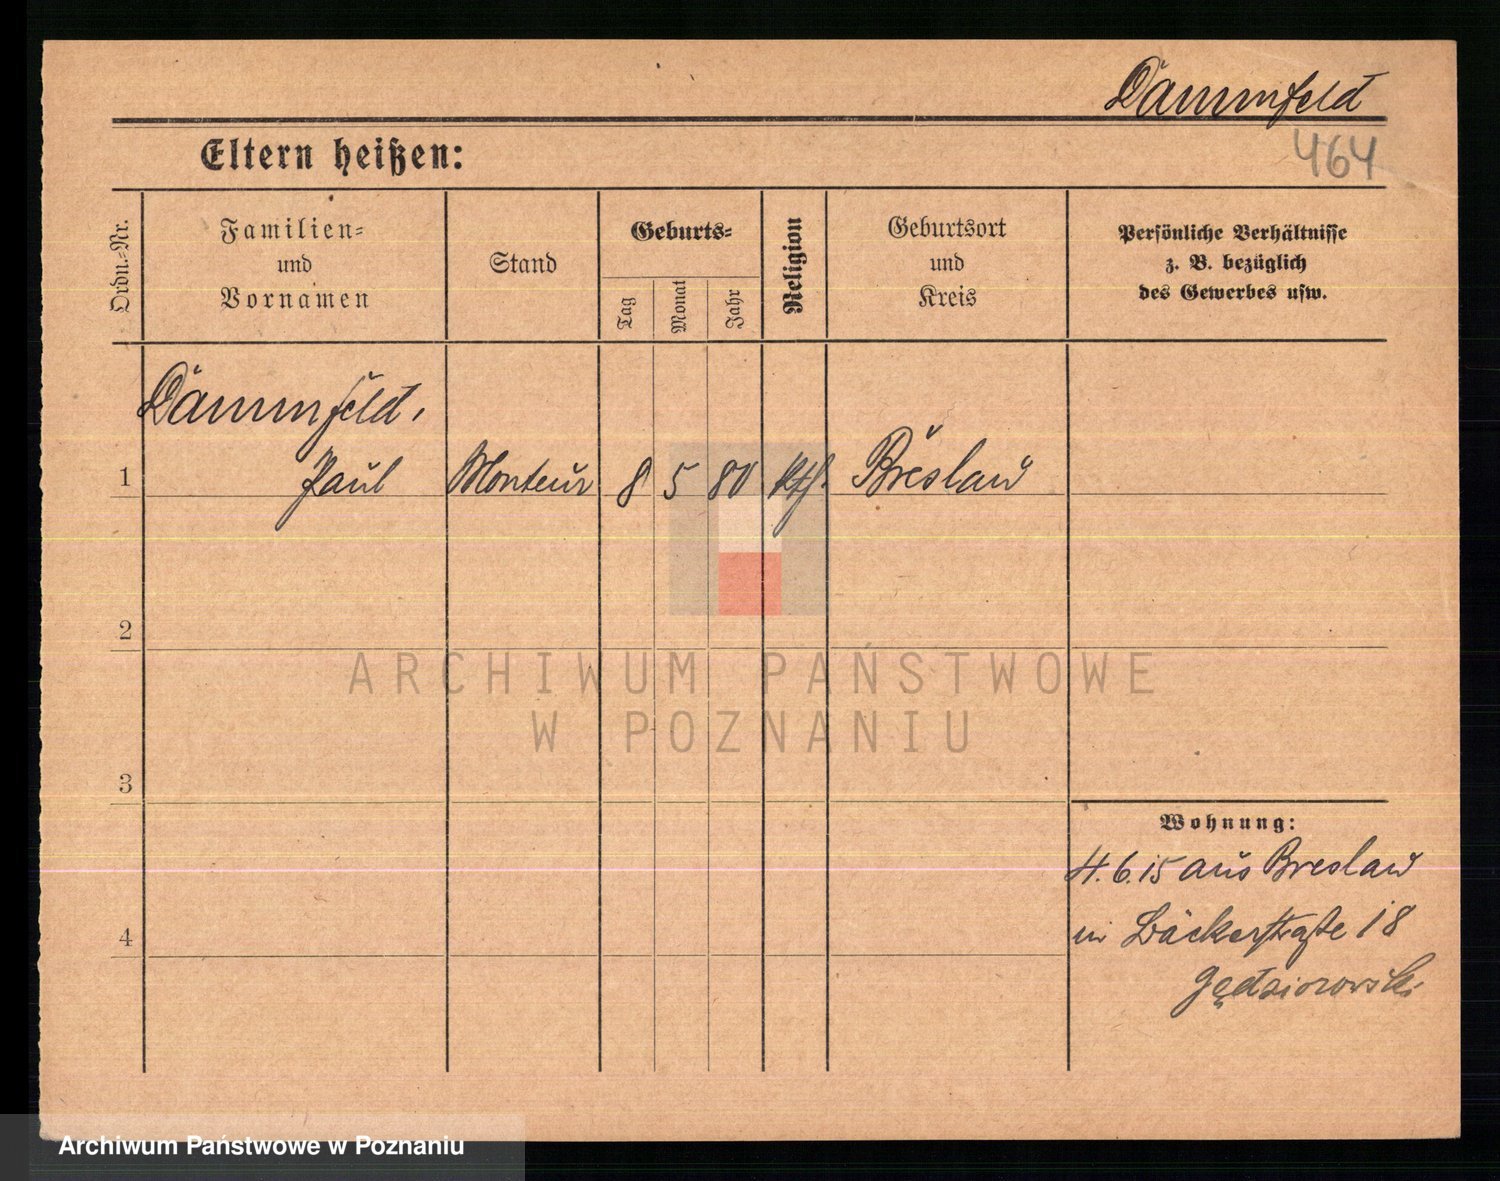 Dammfeld
464
Eltern heißen:
Ordn.-Nr.
Familien- und Vornamen
Stand
Geburts-
Tag
Monat
Jahr
Religion
Geburtsort und Kreis
Persönliche Verhältnisse
z. B. bezüglich
des Gewerbes usw.
Dammfeld,
1 Paul Monteur 8 5 80 kth. Breslau
2
3
4
Wohnung:
4.6.15 aus Breslau
in Bäckerstraße 18
Gędziorowski
ARCHIWUM PAŃSTWOWE
W POZNANIU
Archiwum Państwowe w Poznaniu